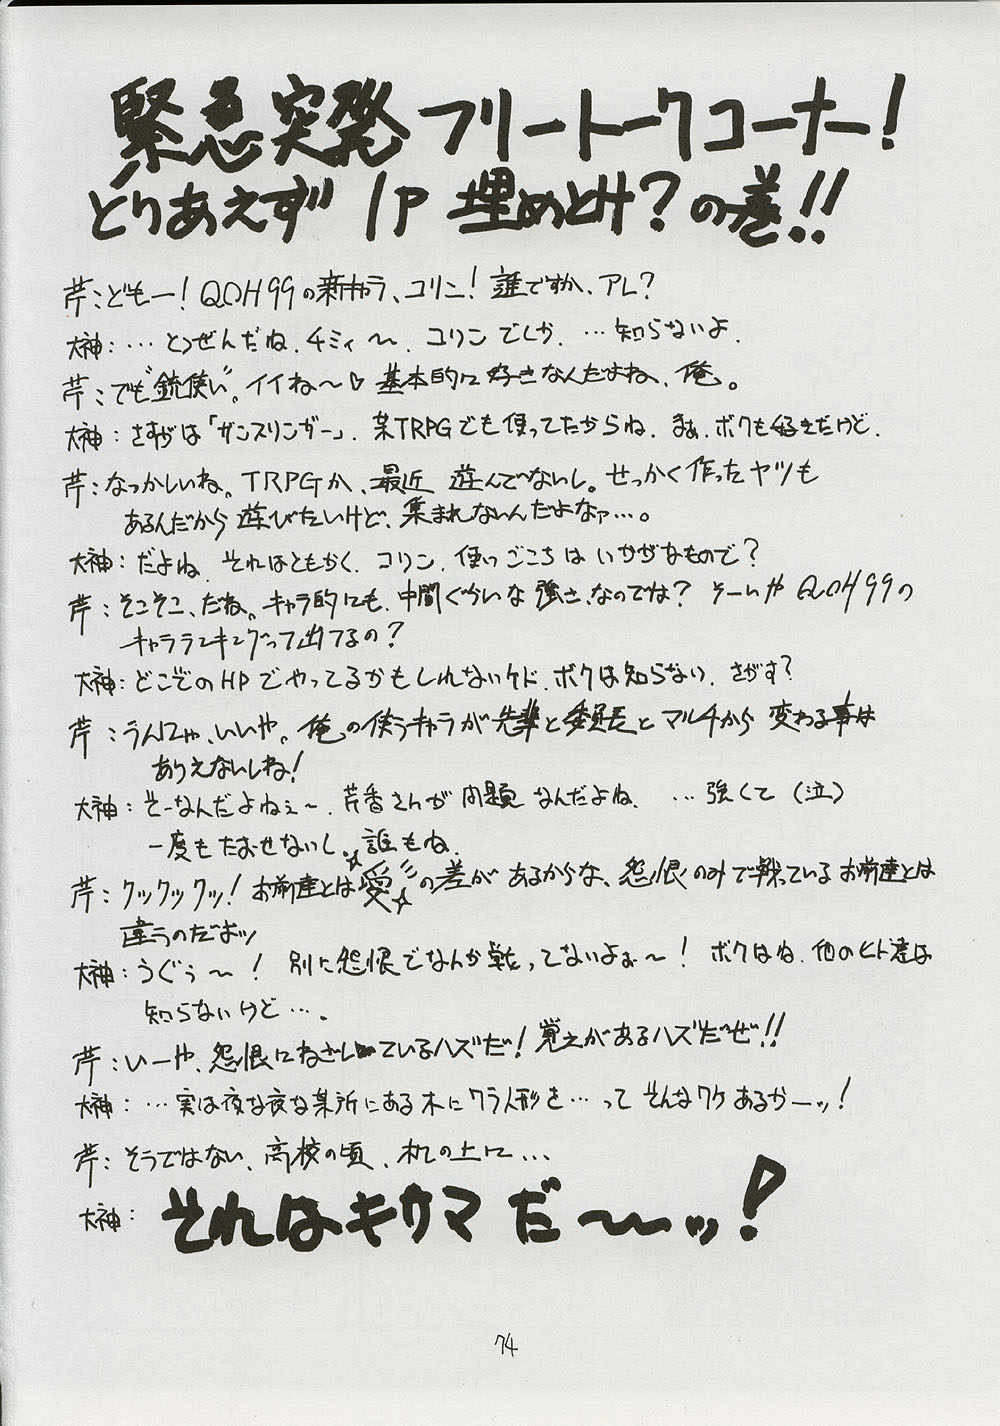 緊急突発フリートークコーナー!
とりあえず1P埋めとけ?の巻!!
芹:どもー!QOH99の新キャラ、コリン!誰ですか、アレ?
大神:…とつぜんだね、チミィ〜、コリンでしか、…知らないよ、
芹:でも"銃使い"。イイね〜♡基本的に好きなんだよね、俺。
大神:さすがは「ガンスリンガー」、某TRPGでも使ってたからね、まぁ、ボクも好きだけど、
芹:なっかしいね。TRPGか、最近 遊んでないし。せっかく作ったヤツも
あるんだから遊びたいけど、集まれないんだよなァ…。
大神:だよね、それはともかく、コリン、使いごこちはいかがなもので?
芹:そこそこ、だね。キャラ的にも、中間ぐらいな強さ、なのでは?そーいやQOH99の
キャラランキングって出てるの?
大神:どこぞのHPでやってるかもしれないケド、ボクは知らない、さがす?
芹:うんにゃ、いいや。俺の使うキャラが先輩と委員長とマルチから変わる事は
ありえないしね!
大神:そーなんだよねぇ〜、芹香さんが問題なんだよね、…強くて(泣)
一度もたおせないし、誰もね、
芹:クックックッ!お前達とは☆愛☆の差があるからな、怨恨のみで戦っているお前達とは
違うのだよッ
大神:うぐぅ〜!別に怨恨でなんか戦ってないよぉ〜!ボクはね、他のヒト達は
知らないけど…。
芹:いーや、怨恨にねざしているハズだ!覚えがあるハズだぜ!!
大神:…実は夜な夜な某所にある木にワラ人形を…ってそんなワケあるかーッ!
芹:そうではない、高校の頃、机の上に…
大神:それはキサマだ〜〜ッ!
74